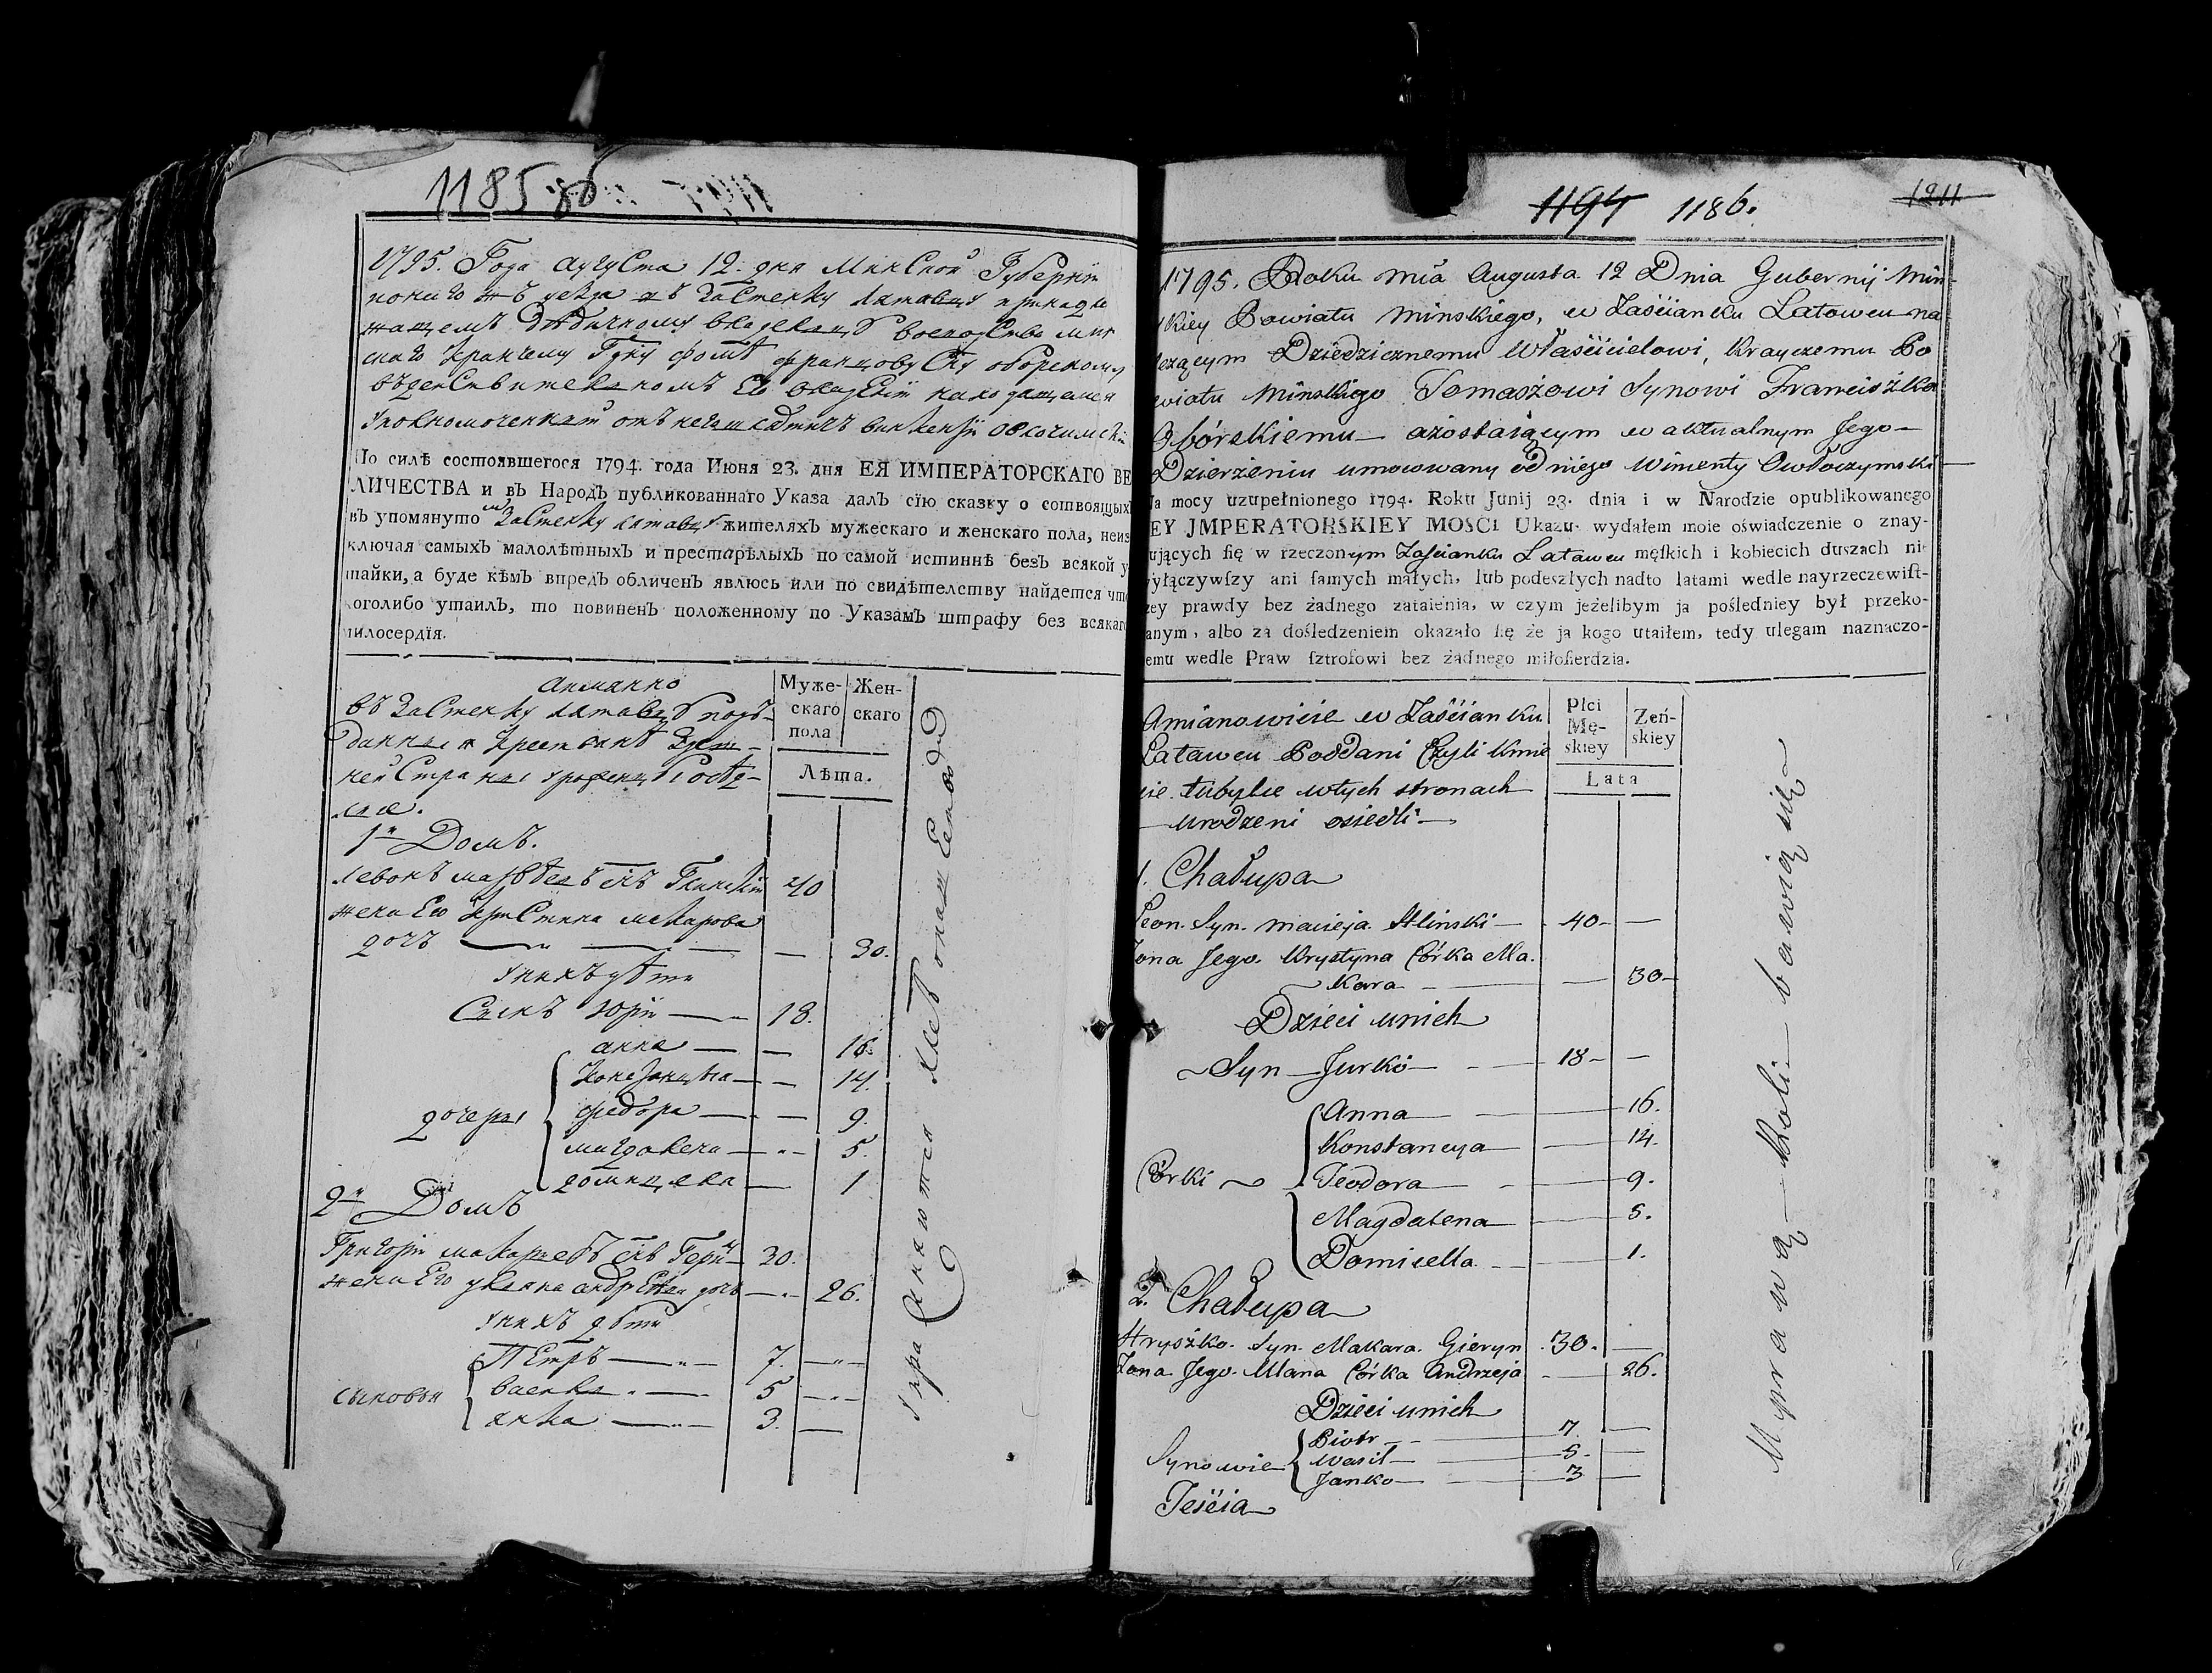 1185 об
1795. Года августа 12. дня Минской Губерніи
тогожъ уезда въ застенку Латавцу принадле
жащемъ дѣдичному владельцу воеводства мин
скаго крайчему Гдну Фомѣ Францову сну оборскому
въ действительномъ Его владѣніи находящемся
уполномоченный отъ него шляхтичъ Викентій
По силѣ состоявшегося 1794. года Июня 23. дня ЕЯ ИМПЕРАТОРСКАГО ВЕ
ЛИЧЕСТВА и въ Народъ публикованнаго Указа далъ сїю сказку о состоящыхъ
въ упомянуто мъ Застенку Латавцу жителяхъ мужескаго и женскаго пола, неиз
ключая самыхъ малолѣтныхъ и престарѣлыхъ по самой истиннѣ безъ всякой у
тайки, а буде кѣмъ впредъ обличенъ явлюсь или по свидѣтелству найдется что
коголибо утаилъ, то повиненъ положенному по Указамъ штрафу без всякаго
милосердїя.
Муже-
скаго
пола
Жен-
скаго
Лѣта.
аимянно
въ Застенку Латавцу подъ-
данныя крестьянѣ здеш-
ней Страны уроженцы оседъ-
лыя.
1й Домъ.
Левонъ матвѣевъ снъ Глинскій 40
жена Его кристина макарова
дочъ — 30.
у нихъ дѣти
Сынъ Юрій 18.
дочери
анна — 16.
Констанцыя — 14.
федора — 9.
магдалена — 5.
домицела — 1
2й Домъ
Григорій макаревъ снъ Герин 30.
жена Его ульяна андрѣева дочъ — 26.
у нихъ дѣти
сыновья
Петръ — 7.
василь — 5
янка — 3.
упра жняются хлебопашеством
1194 1186. 1211
1795. Roku mca Augusta 12 Dnia Gubernij Min-
skiey Powiatu Minskiego, w Zaścianku Latawcu na
leżącym Dziedzicznemu Właścicielowi, Krayczemu Po
wiatu Minskiego Tomaszowi Synowi Franciszka
Obórskiemu — a zostaiącym w aktualnym Jego —
Dzierżeniu umocowany od niego Winenty Owłoczymski
Na mocy uzupełnionego 1794. Roku Junij 23. dnia i w Narodzie opublikowanego
EY JMPERATORSKIEY MOSCI Ukazu wydałem moie oświadczenie o znay-
dujących ſię w rzeczonym Zaścianku Latawcu męſkich i kobiecich duszach nie
wyłączywſzy ani ſamych małych, lub podeszłych nadto latami wedle nayrzeczewiſt-
szey prawdy bez żadnego zataienia, w czym jeżelibym ja pośledniey był przeko-
nanym, albo za dośledzeniem okazało ſię że ja kogo utaiłem, tedy ulegam naznaczo-
nemu wedle Praw ſztrofowi bez żadnego miłoſierdzia.
Płci
Mę-
skiey
Zeń-
skiey
Lata
Amianowicie w Zaścianku
Latawcu Poddani Czyli Kmie
cie tubylce w tych stronach
— urodzeni osiedli —
1. Chałupa
Leon. Syn. Macieja Hlinski — 40 —
Zona Jego Krystyna Córka Ma.
Kara — 30 —
Dzieci u nich
Syn Jurko — 18 —
Córki
Anna — 16.
Konstancya — 14.
Teodora — 9.
Magdalena — 5.
Domicella — 1.
2. Chałupa
Hryszko. Syn. Makara. Gieryn 30. —
Zona Jego Ulana Córka Andrzeja — 26.
Dzieci u nich
Synowie
Piotr — 7 —
Wasil — 5 —
Janko — 3 —
Teścia
Uprawą — Roli — bawią się